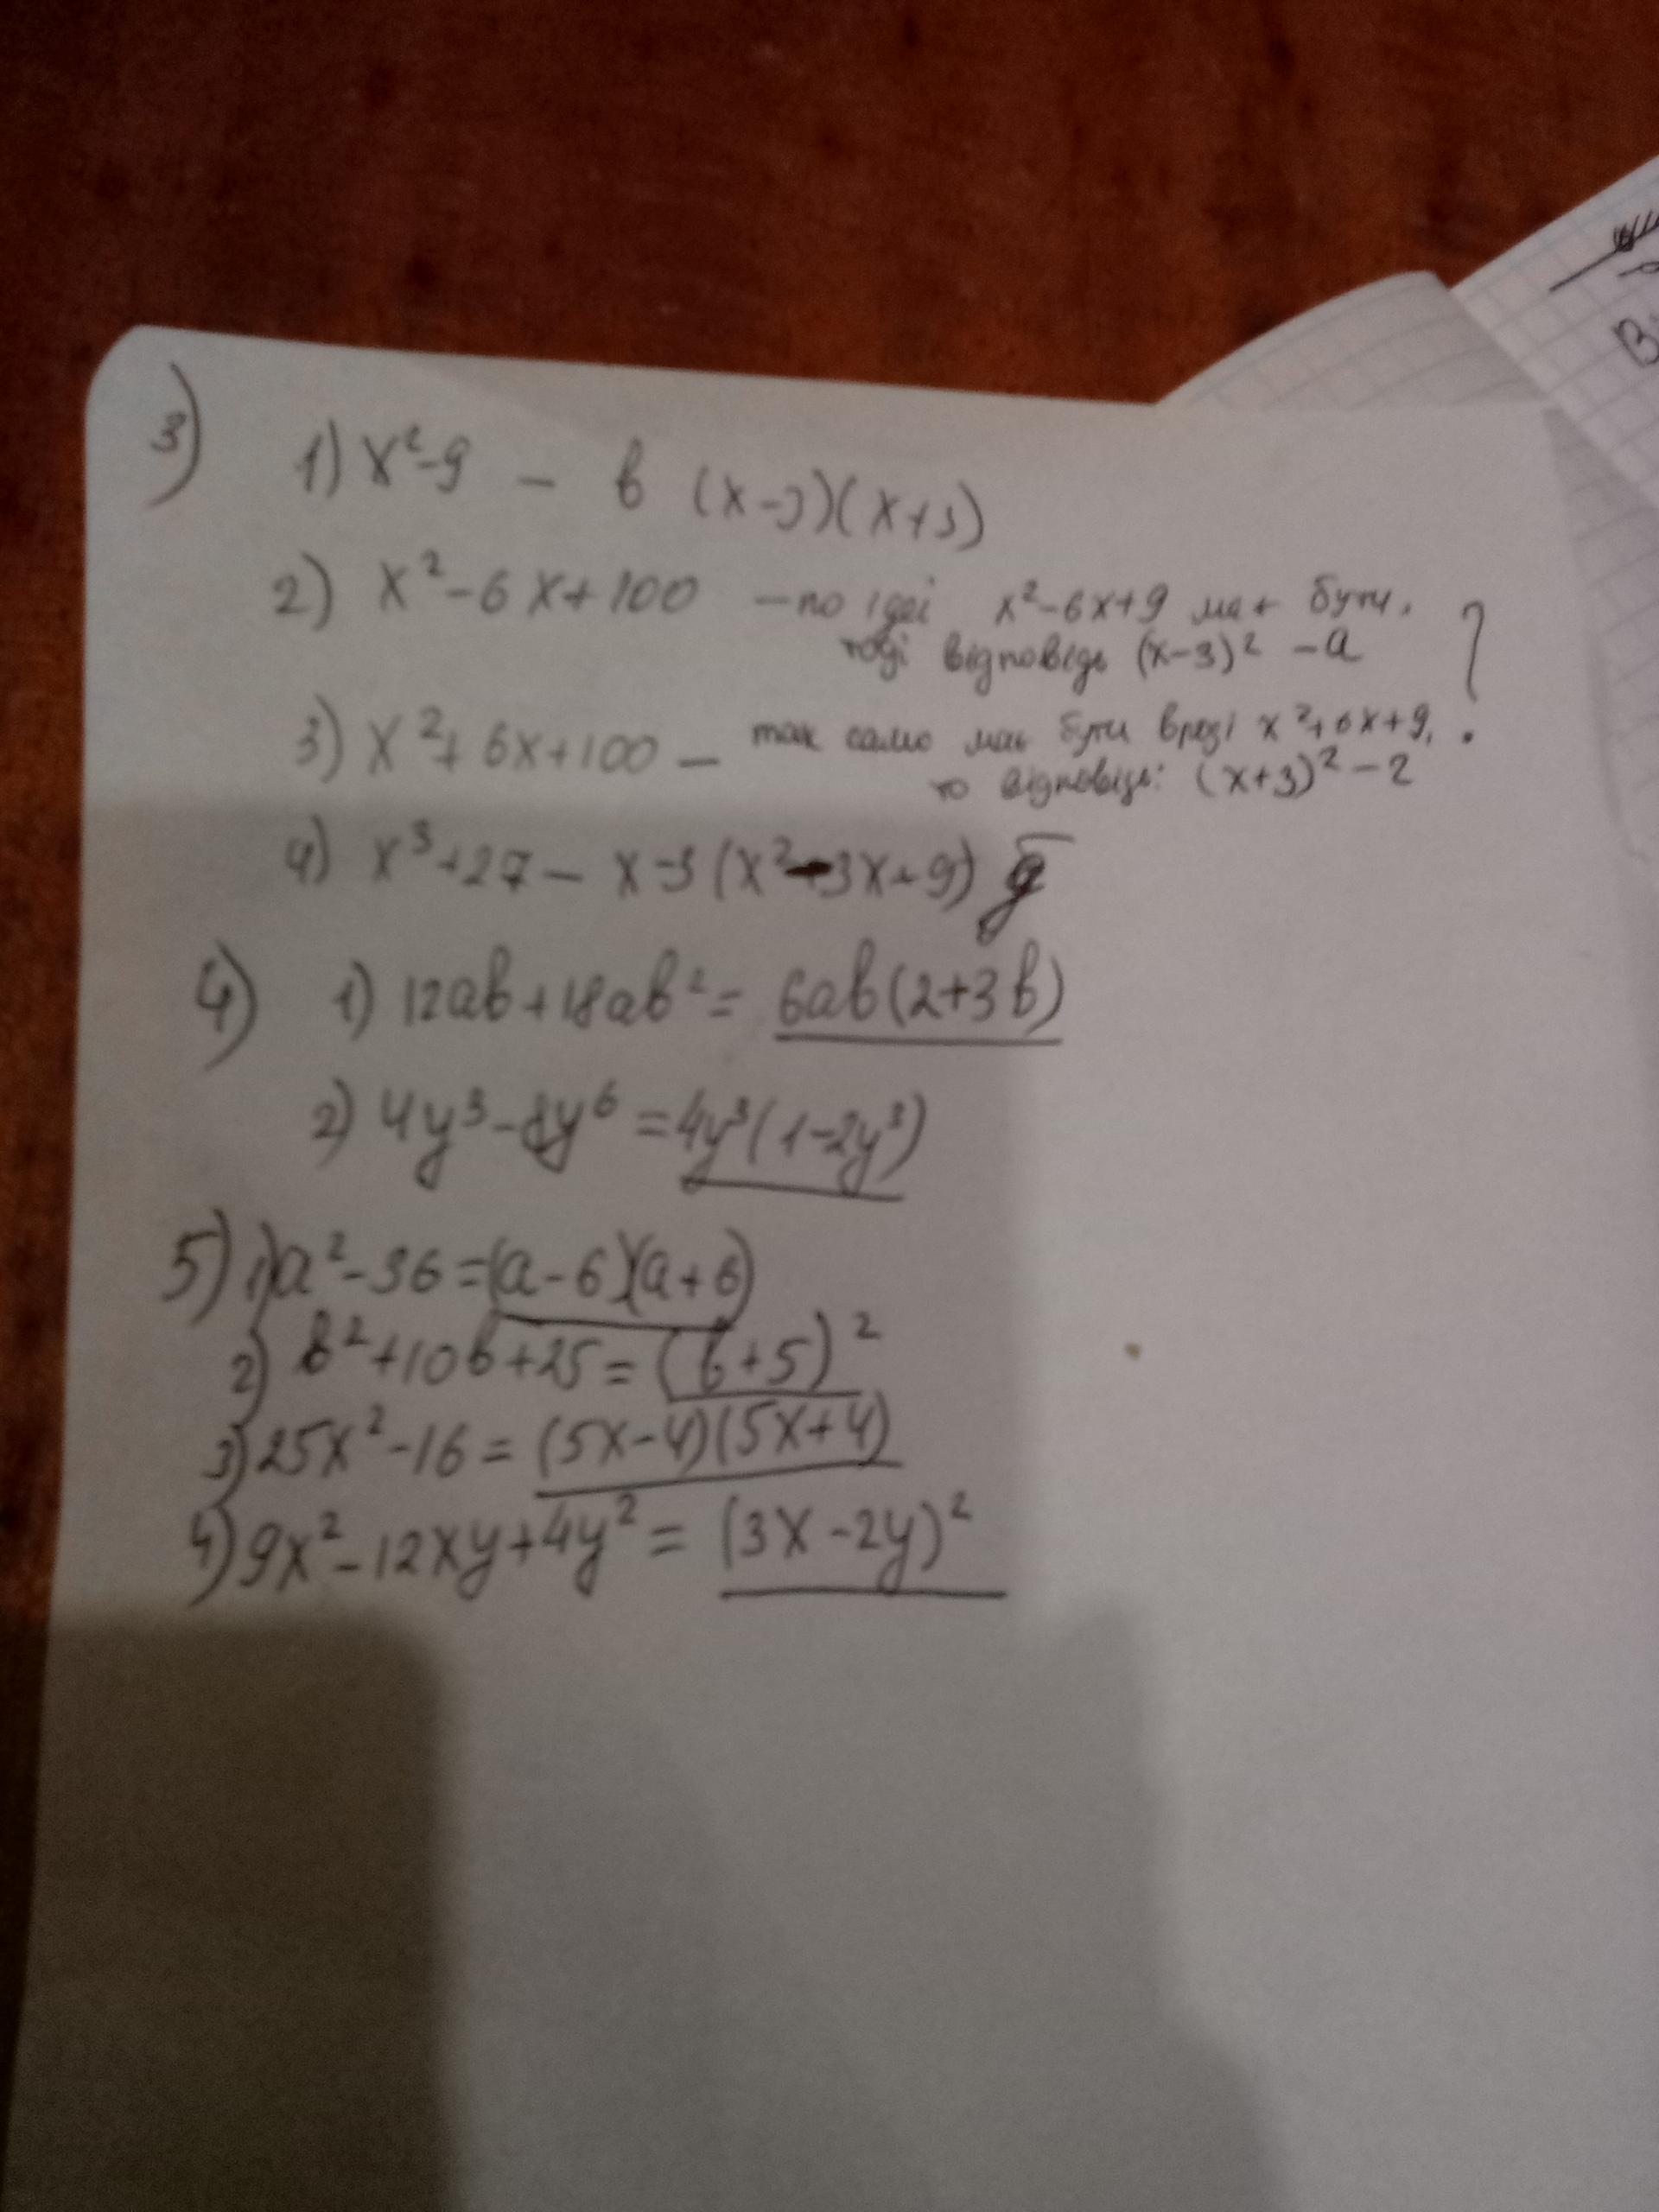 3) 1) x²-9 - в (x-3)(x+3)
2) x²-6x+100 - по ідеї x²-6x+9 має бути,
тоді відповідь (x-3)² - а
?
3) x²+6x+100 - так само має бути вроді x²+6x+9,
то відповідь: (x+3)² - г
4) x³+27 - x-3(x²-3x+9) д
4) 1) 12ab+18ab² = 6ab(2+3b)
2) 4y³-8y⁶ = 4y³(1-2y³)
5) 1) a²-36=(a-6)(a+6)
2) b²+10b+25 = (b+5)²
3) 25x²-16 = (5x-4)(5x+4)
4) 9x²-12xy+4y² = (3x-2y)²